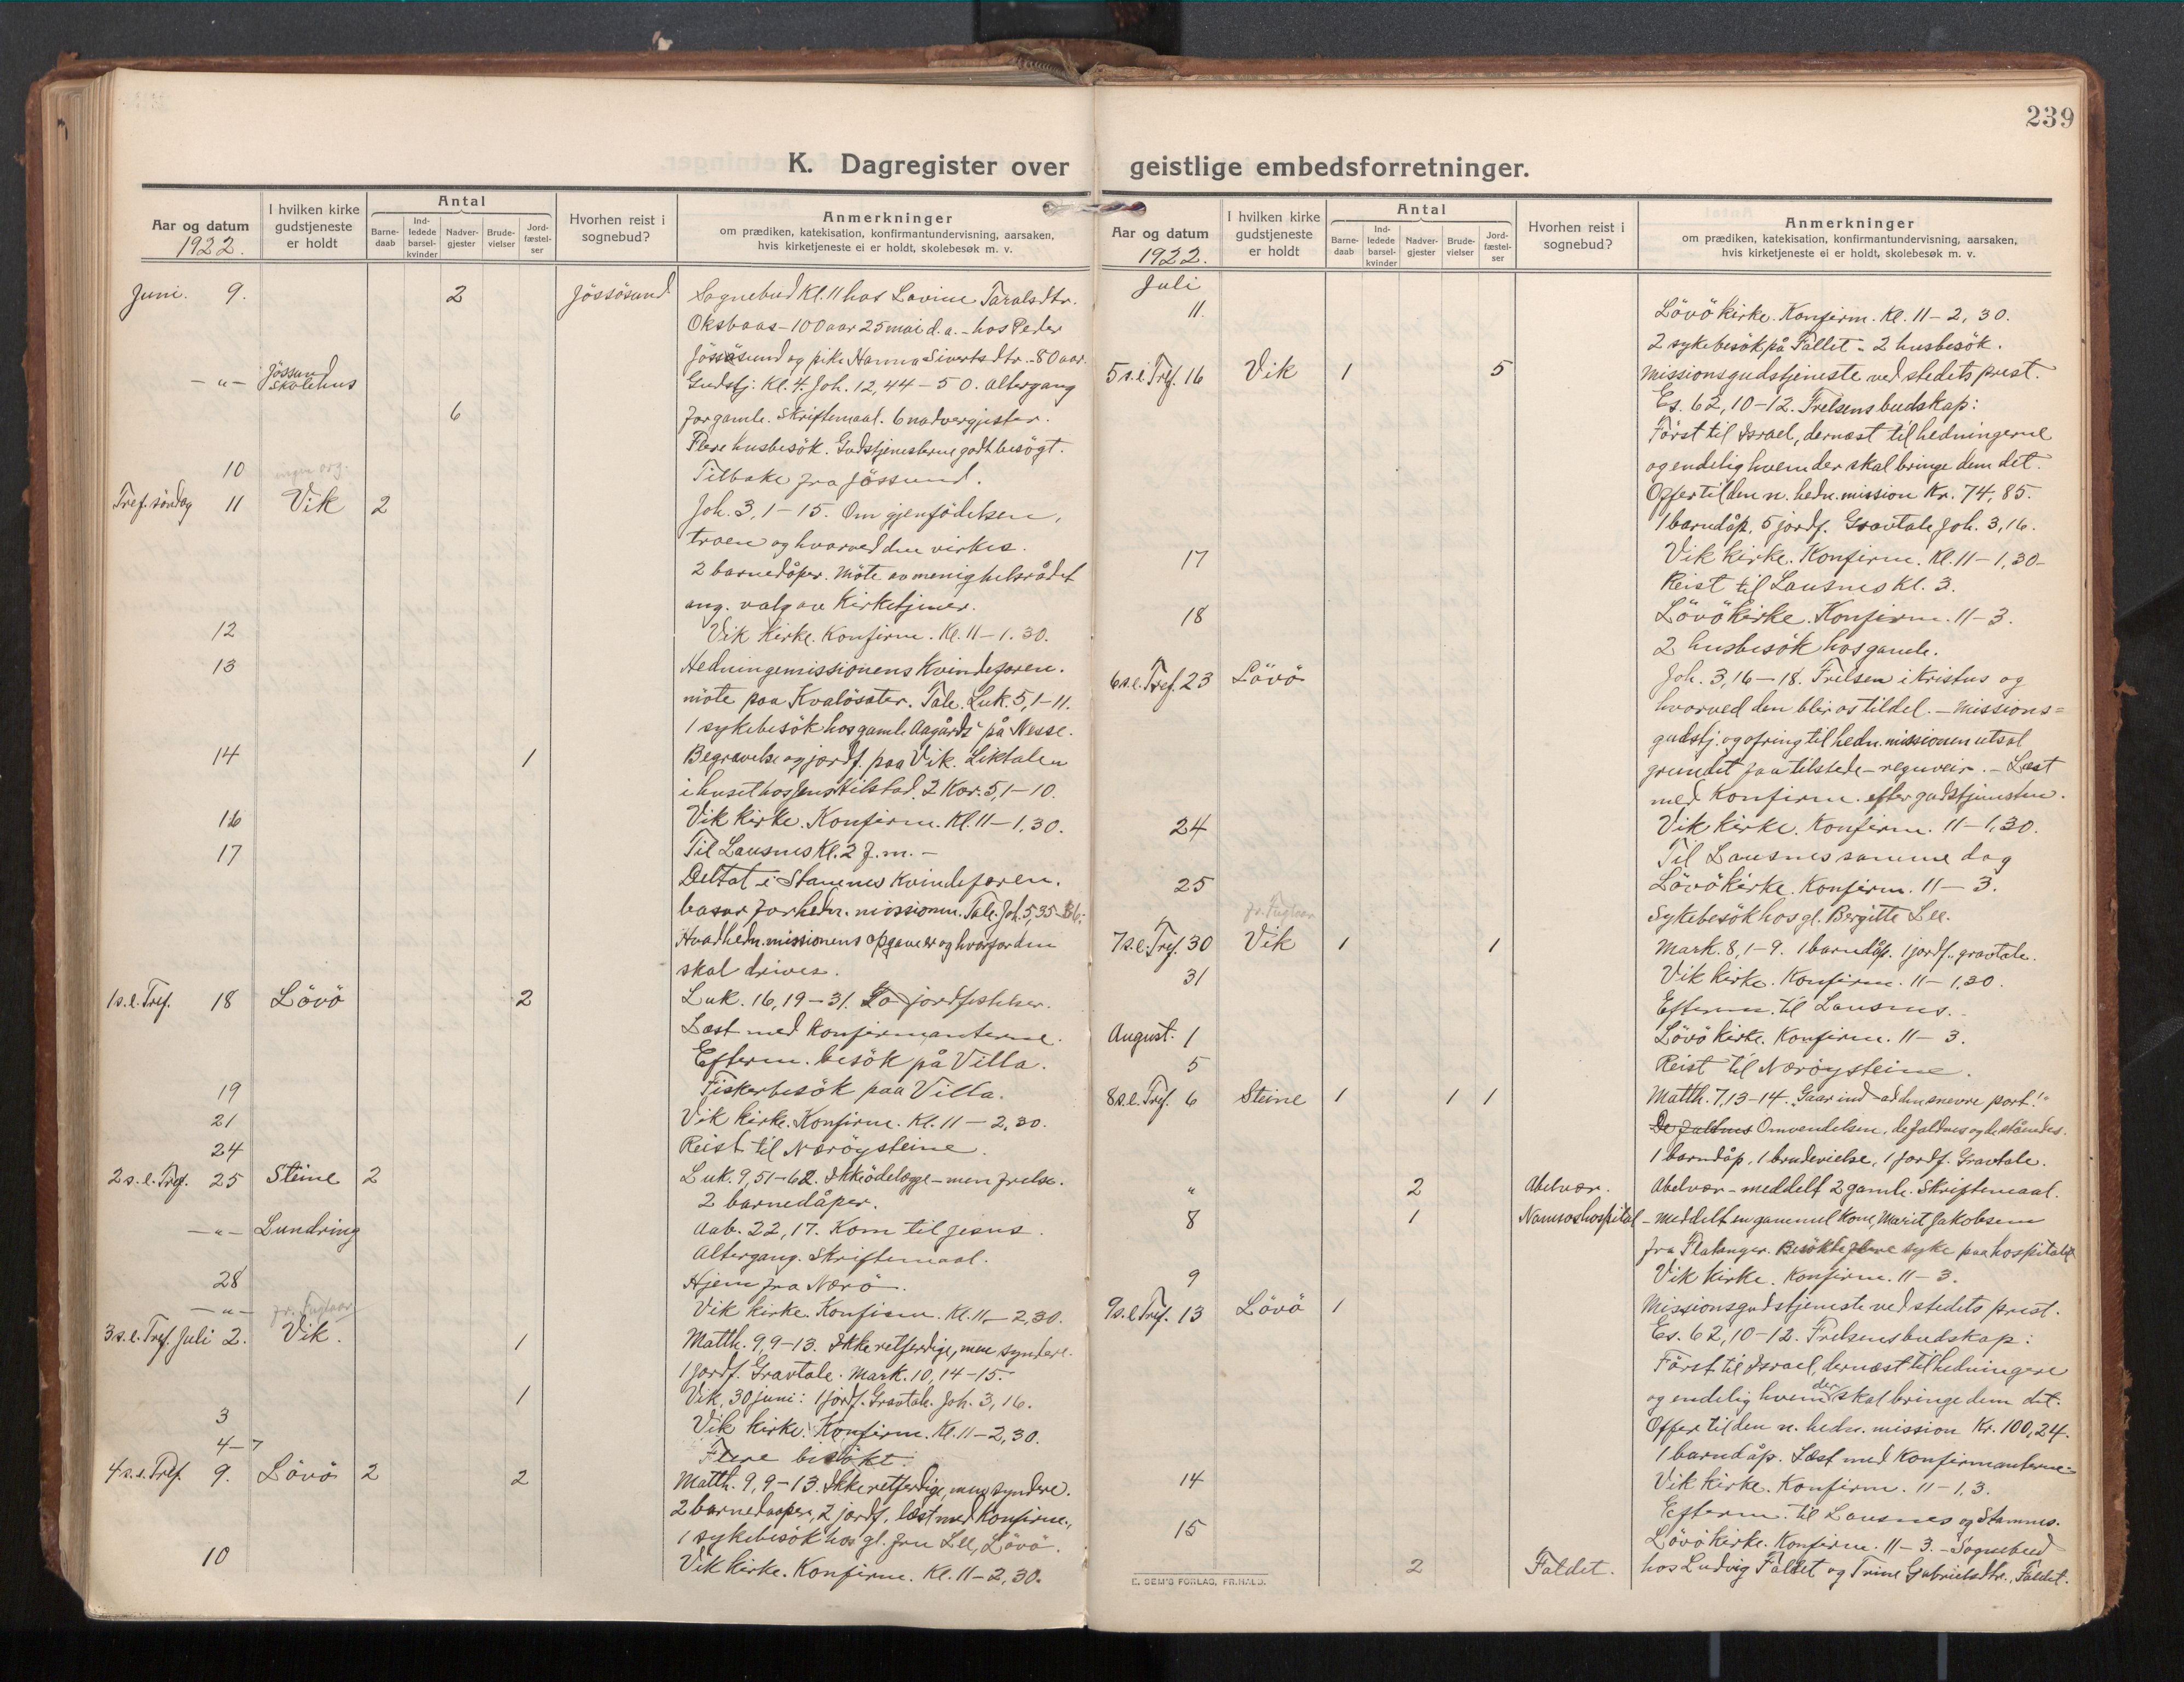 239
K. Dagregister over geistlige embedsforretninger.
Aar og datum
1922.
I hvilken kirke gudstjeneste er holdt
Antal
Barne-daab
Ind-ledede barsel-kvinder
Nadver-gjester
Brude-vielser
Jord-fæstel-ser
Hvorhen reist i sognebud?
Anmerkninger
om prædiken, katekisation, konfirmantundervisning, aarsaken,
hvis kirketjeneste ei er holdt, skolebesøk m. v.
Juni. 9. 2 Jössösund Sognebud Kl. 11 hos Lovine Taralsdtr.
Oksbaas - 100 aar 25 mai d. a. - hos Peder
Jössösund og pike Hanna Sivertsdtr. - 80 aar.
-"- Jössund Skolehus Gudstj. Kl. 4. Joh. 12,44-50. altergang
6 for gamle. Skriftemaal. 6 nadvergjester.
Flere husbesök. Gudstjenesterne godt besögt.
10 Tilbake fra Jössund.
ingen org.
Tref. söndag 11 Vik 2 Joh. 3, 1-15. Om gjenfödelsen,
troen og hvorved den virkes.
2 barnedåper. Möte av menighetsrådet
ang. valg av Kirketjener.
12 Vik Kirke. Konfirm. Kl. 11-1.30.
13 Hedningemissionens Kvindeforen.
möte paa Kvalösæter. Tale. Luk. 5, 1-11.
1 sykebesök hos gamle Aagårds på Nesse.
14 1 Begravelse og jordf. paa Vik. Liktalen
i huset hos Jens Kilstad. 2 Kor. 5, 1-10.
16 Vik Kirke. Konfirm. Kl. 11-1,30.
17 Til Lausnes Kl. 2 f.m. -
Deltat i Stamnes Kvindeforen.
basar for hedn. missionen. Tale. Joh. 5,35-36:
Hvad hedn. missionens opgave er og hvorfor den
skal drives.
1 s. e. Tref. 18 Lövö 2 Luk. 16, 19-31. To jordfestelser.
Læst med Konfirmanterne.
Efterm. besök på Villa.
19 Fiskerbesök paa Villa.
21 Vik Kirke. Konfirm. Kl. 11-2,30.
24 Reist til Næröysteine.
2 s. e. Tref. 25 Steine 2 Luk. 9, 51-62. Ikke ödelægge - men frelse.
2 barnedåper.
-"- Lundring Aab. 22, 17. Kom til Jesus.
Altergang. Skriftemaal.
28 Hjem fra Nærö.
-"- Vik Kirke. Konfirm. Kl. 11-2,30.
fr. Fuglaar
3 s. e. Tref. Juli 2. Vik. 1 Matth. 9, 9-13. Ikke retferdige, men syndere.
1 jordf. Gravtale. Mark. 10, 14-15.
1 Vik, 30 juni: 1 jordf. Gravtale. Joh. 3, 16.
3 Vik Kirke. Konfirm. Kl. 11-2,30.
4-7 Flere besökt.
4 s. e. Tref. 9. Lövö 2 2 Matth. 9, 9-13. Ikke retferdige, men syndere.
2 barnedaaper, 2 jordf., læst med Konfirm.,
1 sykebesök hos gl. fru Lee, Lövö.
10 Vik Kirke. Konfirm. Kl. 11-2,30.
Aar og datum
1922.
I hvilken kirke gudstjeneste er holdt
Antal
Barne-daab
Ind-ledede barsel-kvinder
Nadver-gjester
Brude-vielser
Jord-fæstel-ser
Hvorhen reist i sognebud?
Anmerkninger
om prædiken, katekisation, konfirmantundervisning, aarsaken,
hvis kirketjeneste ei er holdt, skolebesøk m. v.
Juli
11. Lövö kirke. Konfirm. Kl. 11-2,30.
2 sykebesök på Fallet - 2 husbesök.
5 s. e. Tref. 16 Vik 1 5 Missionsgudstjeneste ved stedets prest.
Es. 62, 10-12. Frelsens budskap:
Först til Israel, dernæst til hedningerne
og endelig hvem der skal bringe dem det.
Offer til den n. hedn. mission Kr. 74,85.
1 barndåp, 5 jordf. Gravtale Joh. 3,16.
17 Vik kirke. Konfirm. Kl. 11-1,30-
Reist til Lausnes Kl. 3.
18 Lövö kirke. Konfirm. 11-3.
2 husbesök hos gamle.
6 s. e. Tref. 23 Lövö Joh. 3, 16-18. Frelsen i Kristus og
hvorved den blir os tildel. - Missions=
gudstj. og ofring til hedn. missionen utsat
grundet faa tilstede - regnveir. - Læst
med Konfirm. efter gudstjenesten.
24 Vik kirke. Konfirm. 11-1,30.
Til Lausnes samme dag
25 Lövö kirke. Konfirm. 11-3.
Sykebesök hos gl. Bergitte Lee.
fr. Fuglaar
7 s. e. Tref. 30 Vik 1 1 Mark. 8, 1-9. 1 barndåp. 1 jordf. gravtale.
31 Vik kirke. Konfirm. 11-1,30.
Efterm. til Lausnes.
August. 1 Lövö kirke. Konfirm. 11-3.
5 Reist til Næröysteine.
8 s. e. Tref. 6 Steine 1 1 1 Matth. 7, 13-14. "Gaar ind ad den snevre port!"
De faldnes Omvendelsen, de faldnes og de ståendes.
1 barndåp, 1 brudevielse, 1 jordf. Gravtale.
" 2 Abelvær. Abelvær - meddelt 2 gamle. Skriftemaal.
8 1 Namsos hospital - meddelt en gammel Kone, Marit Jakobsen
fra Flatanger. Besökte flere syke paa hospitalet
9 Vik kirke. Konfirm. 11-3.
9 s. e. Tref. 13 Lövö 1 Missionsgudstjeneste ved stedets prest.
Es. 62, 10-12. Frelsens budskap:
Först til Israel, dernæst til hedningene
og endelig hvem der skal bringe dem det.
Offer til den n. hedn. mission Kr. 100,24.
1 barndåp. Læst med Konfirmanterne.
14 Vik kirke. Konfirm. 11-1,3.
Efterm. til Lausnes og Stamnes.
15 Lövö kirke. Konfirm. 11-3. - Sognebud
2 Faldet. hos Ludvig Faldet og Trine Gabrielsdtr., Faldet.
E. SEM'S FORLAG, FR.HALD.